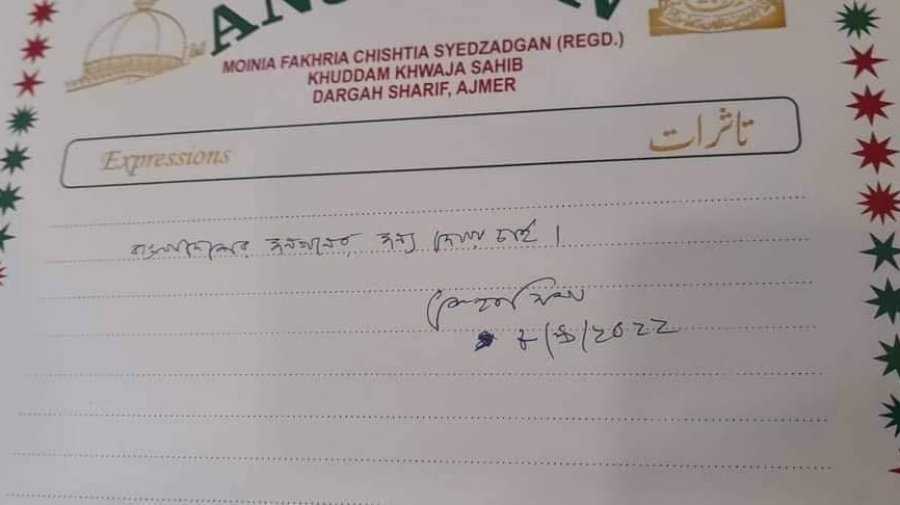 MOINIA FAKHRIA CHISHTIA SYEDZADGAN (REGD.)
KHUDDAM KHWAJA SAHIB
DARGAH SHARIF, AJMER
Expressions تاثرات
বাংলাদেশের জনগণের জন্য দোয়া চাই।
শেখ হাসিনা
৮/৯/২০২২